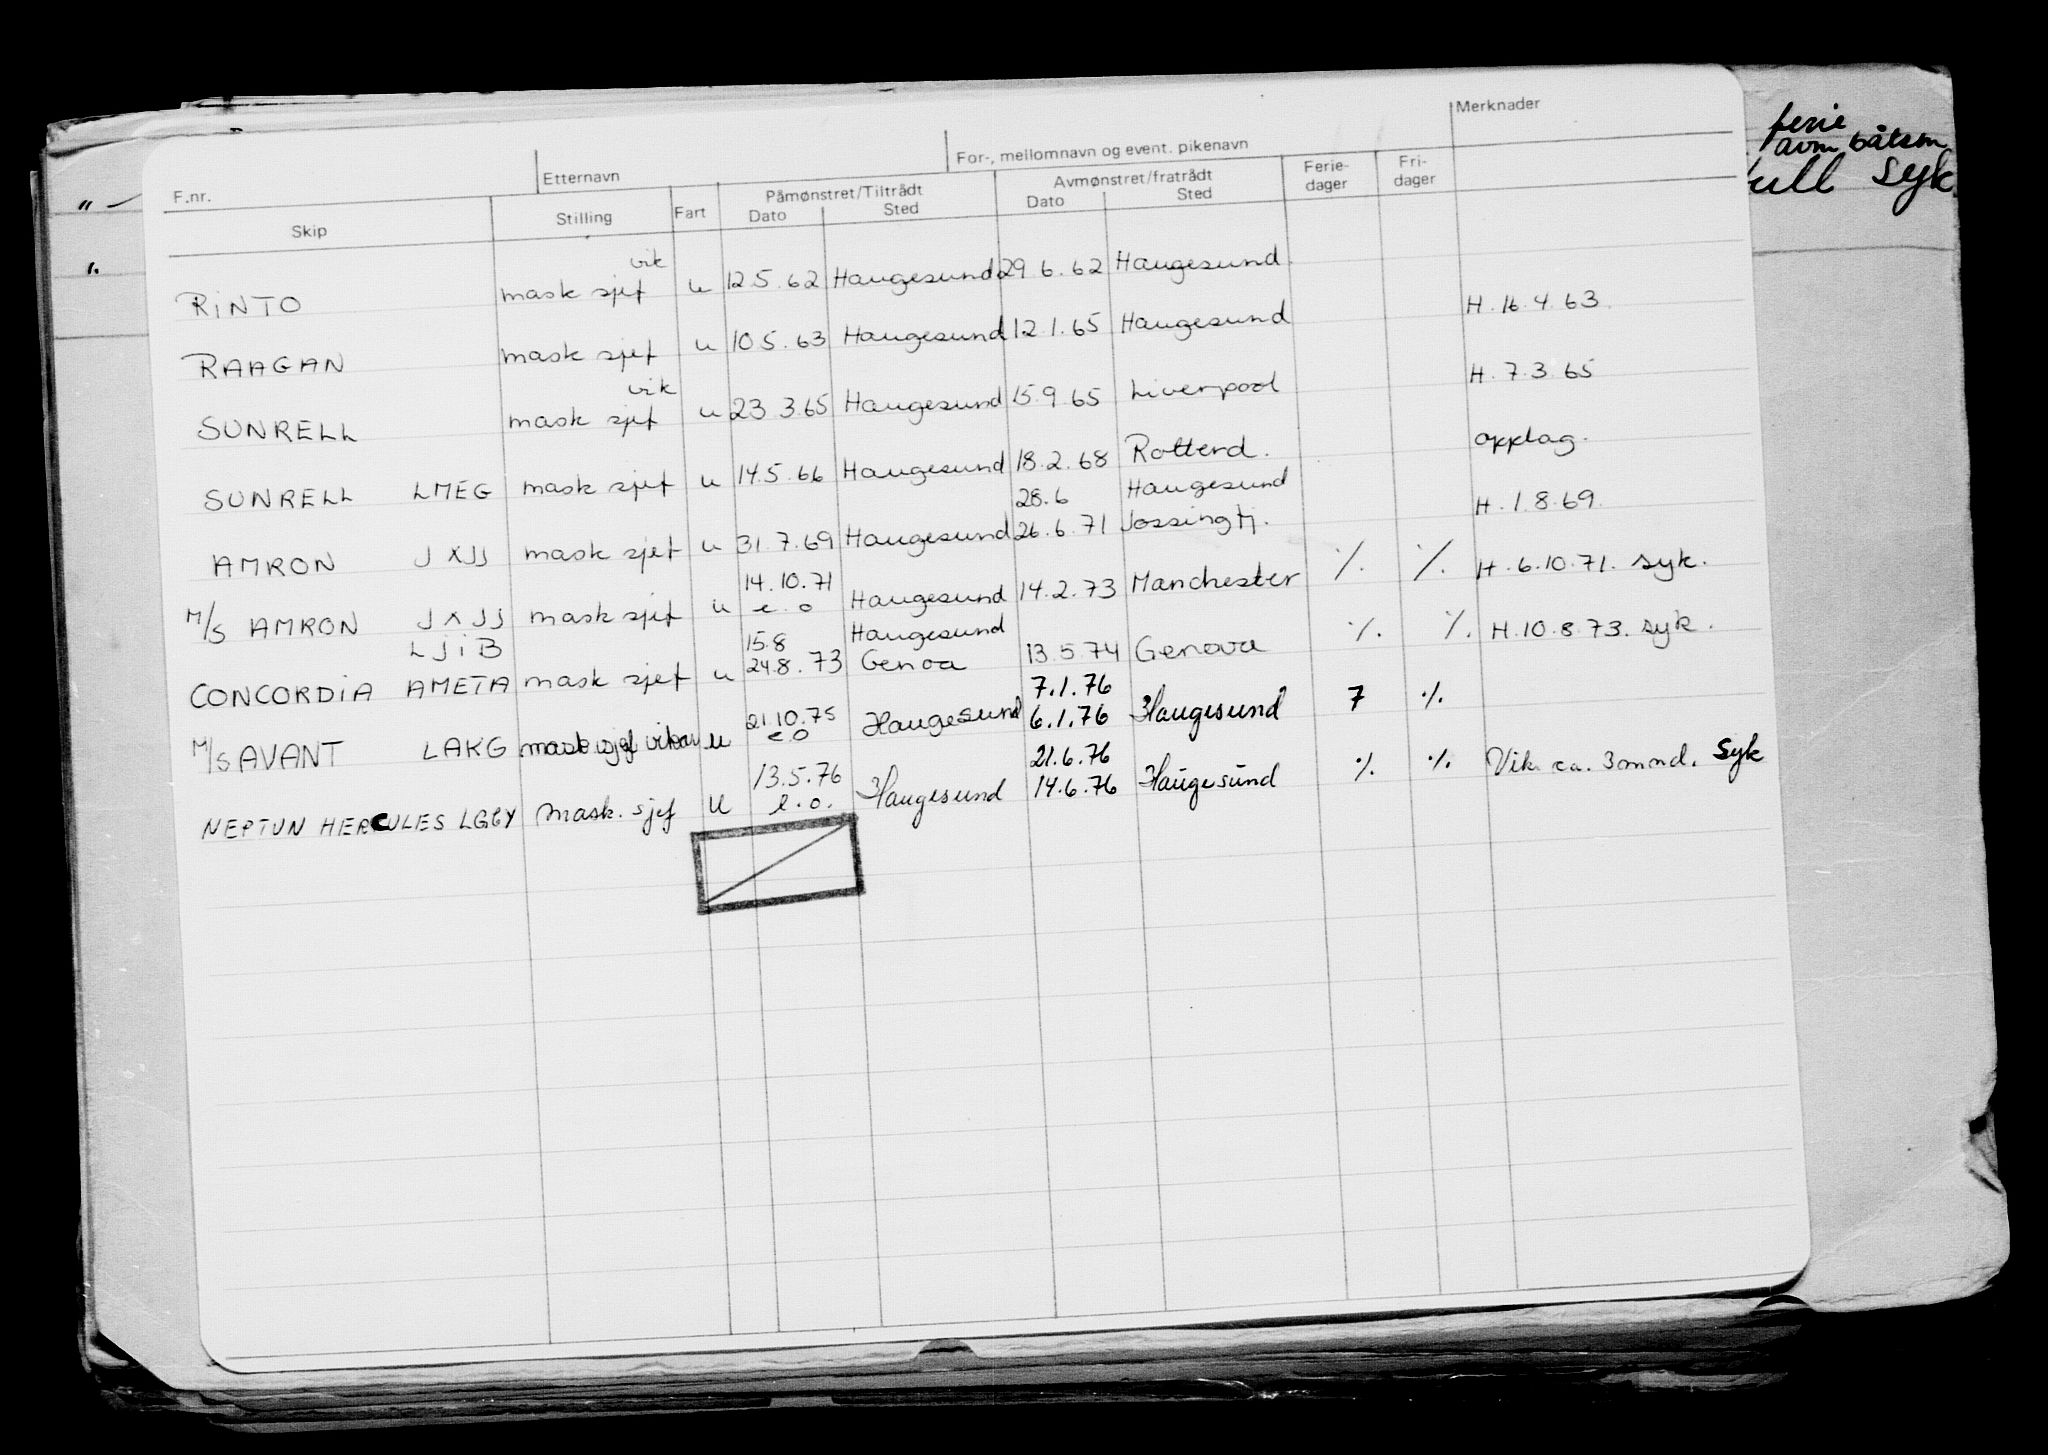 Merknader
For-, mellomnavn og event. pikenavn
F.nr. Etternavn
Skip Stilling Fart Påmønstret/Tiltrådt Dato Sted Avmønstret/fratrådt Dato Sted Ferie-dager Fri-dager
ferie
avm båtsm
syk
" —
vik
RINTO mask sjef u 12.5.62 Haugesund 29.6.62 Haugesund
RAAGAN mask sjef u 10.5.63 Haugesund 12.1.65 Haugesund H. 16.4.63.
vik
SUNRELL mask sjef u 23.3.65 Haugesund 15.9.65 Liverpool H. 7.3.65
SUNRELL LMEG mask sjef u 14.5.66 Haugesund 18.2.68 Rotterd. opplag.
28.6 Haugesund
AMRON JXJJ mask sjef u 31.7.69 Haugesund 26.6.71 Jossingfj. H. 1.8.69.
14.10.71
M/S AMRON JXJJ mask sjef u e.o Haugesund 14.2.73 Manchester ./. ./. H. 6.10.71. syk.
LJiB 15.8 Haugesund
CONCORDIA AMETA mask sjef u 24.8.73 Genoa 13.5.74 Genova ./. ./. H. 10.8.73. syk.
21.10.75 7.1.76
M/S AVANT LAKG mask sjef vikar u e.o Haugesund 6.1.76 Haugesund 7 ./.
13.5.76 21.6.76
NEPTUN HERCULES LGGY mask. sjef u e.o. Haugesund 14.6.76 Haugesund ./. ./. Vik. ca. 3 mnd. syk